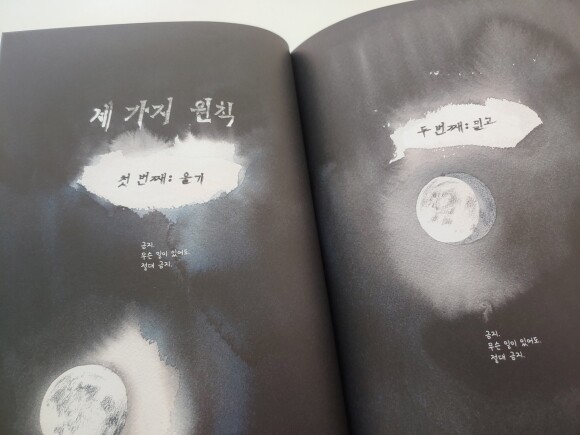 세 가지 원칙
첫 번째: 울기
금지.
무슨 일이 있어도
절대 금지.
두 번째: 믿고
금지.
무슨 일이 있어도.
절대 금지.